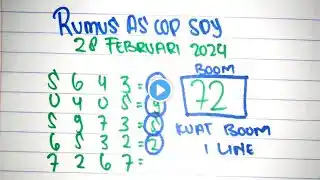 RUMUS AS COP SDY
28 FEBRUARI 2024
5 6 4 3 =
0 4 0 5 = 9
5 9 7 3 = 5
6 5 3 2 = 2
7 2 6 7 =
BOOM
72
KUAT BOOM
1 LINE